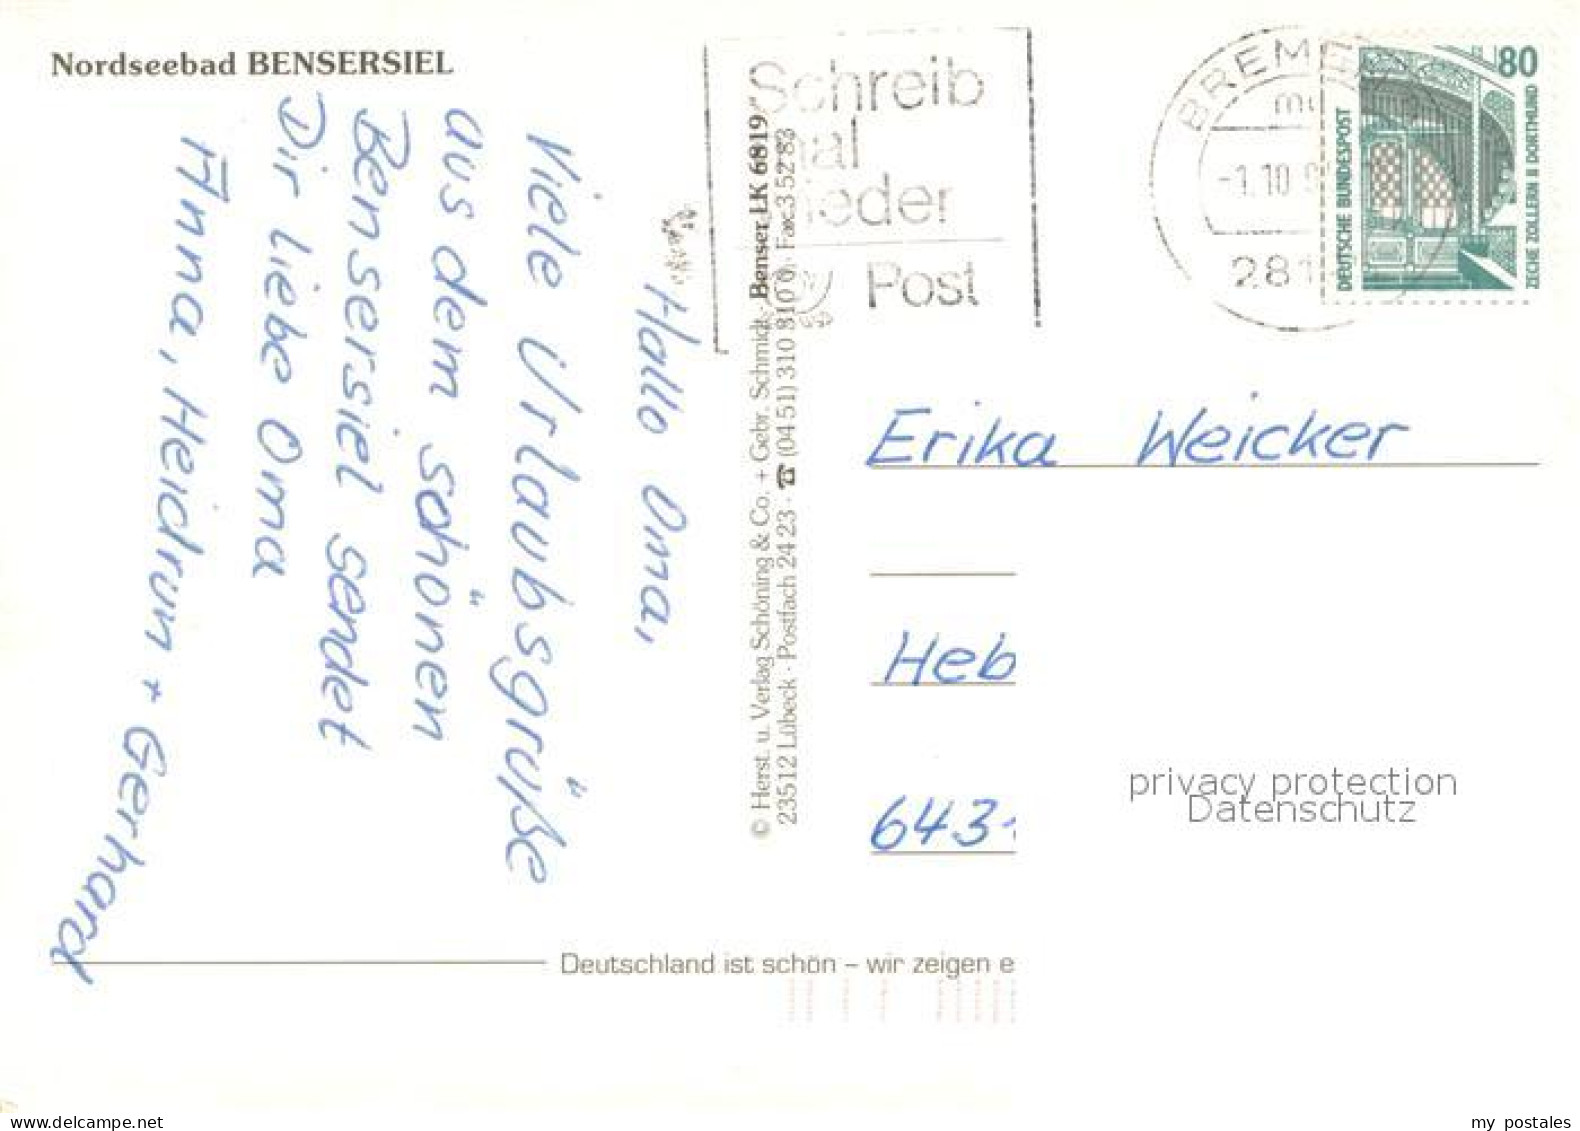 Nordseebad BENSERSIEL
Hallo Oma,
Viele Urlaubsgrüße
aus dem schönen
Bensersiel sendet
Dir liebe Oma
Anna, Heidrun + Gerhard
© Herst. u. Verlag Schöning & Co. + Gebr. Schmidt · Benser LK 6819
23512 Lübeck · Postfach 24 23 · ☎ (04 51) 310 310 · Fax: 3 52 83
Schreib
mal
wieder
Post
BREMEN
-1.10.9
281
80
DEUTSCHE BUNDESPOST
ZECHE ZOLLERN II DORTMUND
Erika Weicker
Heb
643
privacy protection
Datenschutz
Deutschland ist schön – wir zeigen e
my postales